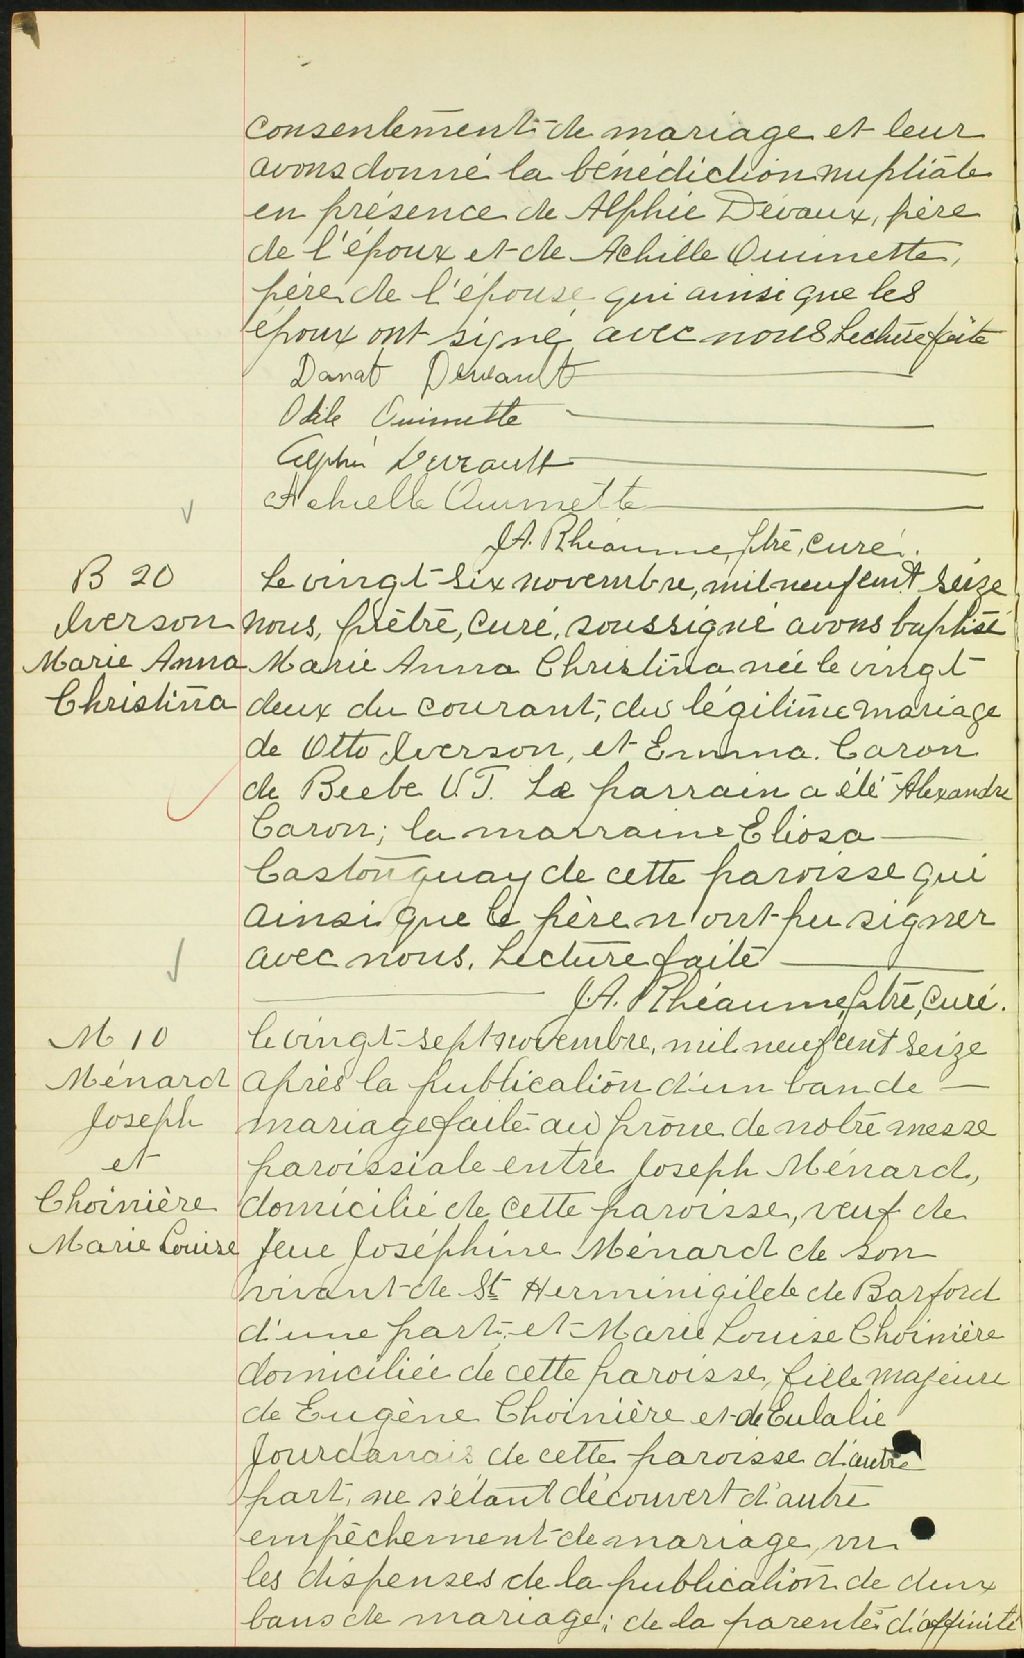 consentement de mariage et leur
avons donné la bénédiction nuptiale
en présence de Alphie Devaux, père
de l'époux et de Achille Ouimette,
père de l'épouse qui ainsi que les
époux ont signé avec nous Lecture faite
Odile Ouimette
Achille Ouimette
J.A. Rhéaume, ptre, curé.
B 20
Iverson
Marie Anna
Christina
Le vingt-six novembre, mil neuf cent seize
nous, prêtre, curé, soussigné avons baptisé
Marie Anna Christina née le vingt
deux du courant, du légitime mariage
de Otto Iverson, et Emma Caron
de Beebe V.T. Le parrain a été Alexandre
Caron; la marraine Eliosa
Castonguay de cette paroisse qui
ainsi que le père n'ont pu signer
avec nous. Lecture faite
J.A. Rhéaume, ptre, curé.
M 10
Ménard
Joseph
et
Choinière
Marie Louise
Le vingt-sept novembre, mil neuf cent seize
après la publication d'un ban de
mariage faite au prône de notre messe
paroissiale entre Joseph Ménard,
domicilié de cette paroisse, veuf de
feue Joséphine Ménard de son
vivant de St Herminigilde de Barford
d'une part, et Marie Louise Choinière
domiciliée de cette paroisse, fille majeure
de Eugène Choinière et de Eulalie
Jourdannais de cette paroisse d'autre
part, ne s'étant découvert d'autre
empêchement de mariage, vu
les dispenses de la publication de deux
bans de mariage; de la parenté d'affinité